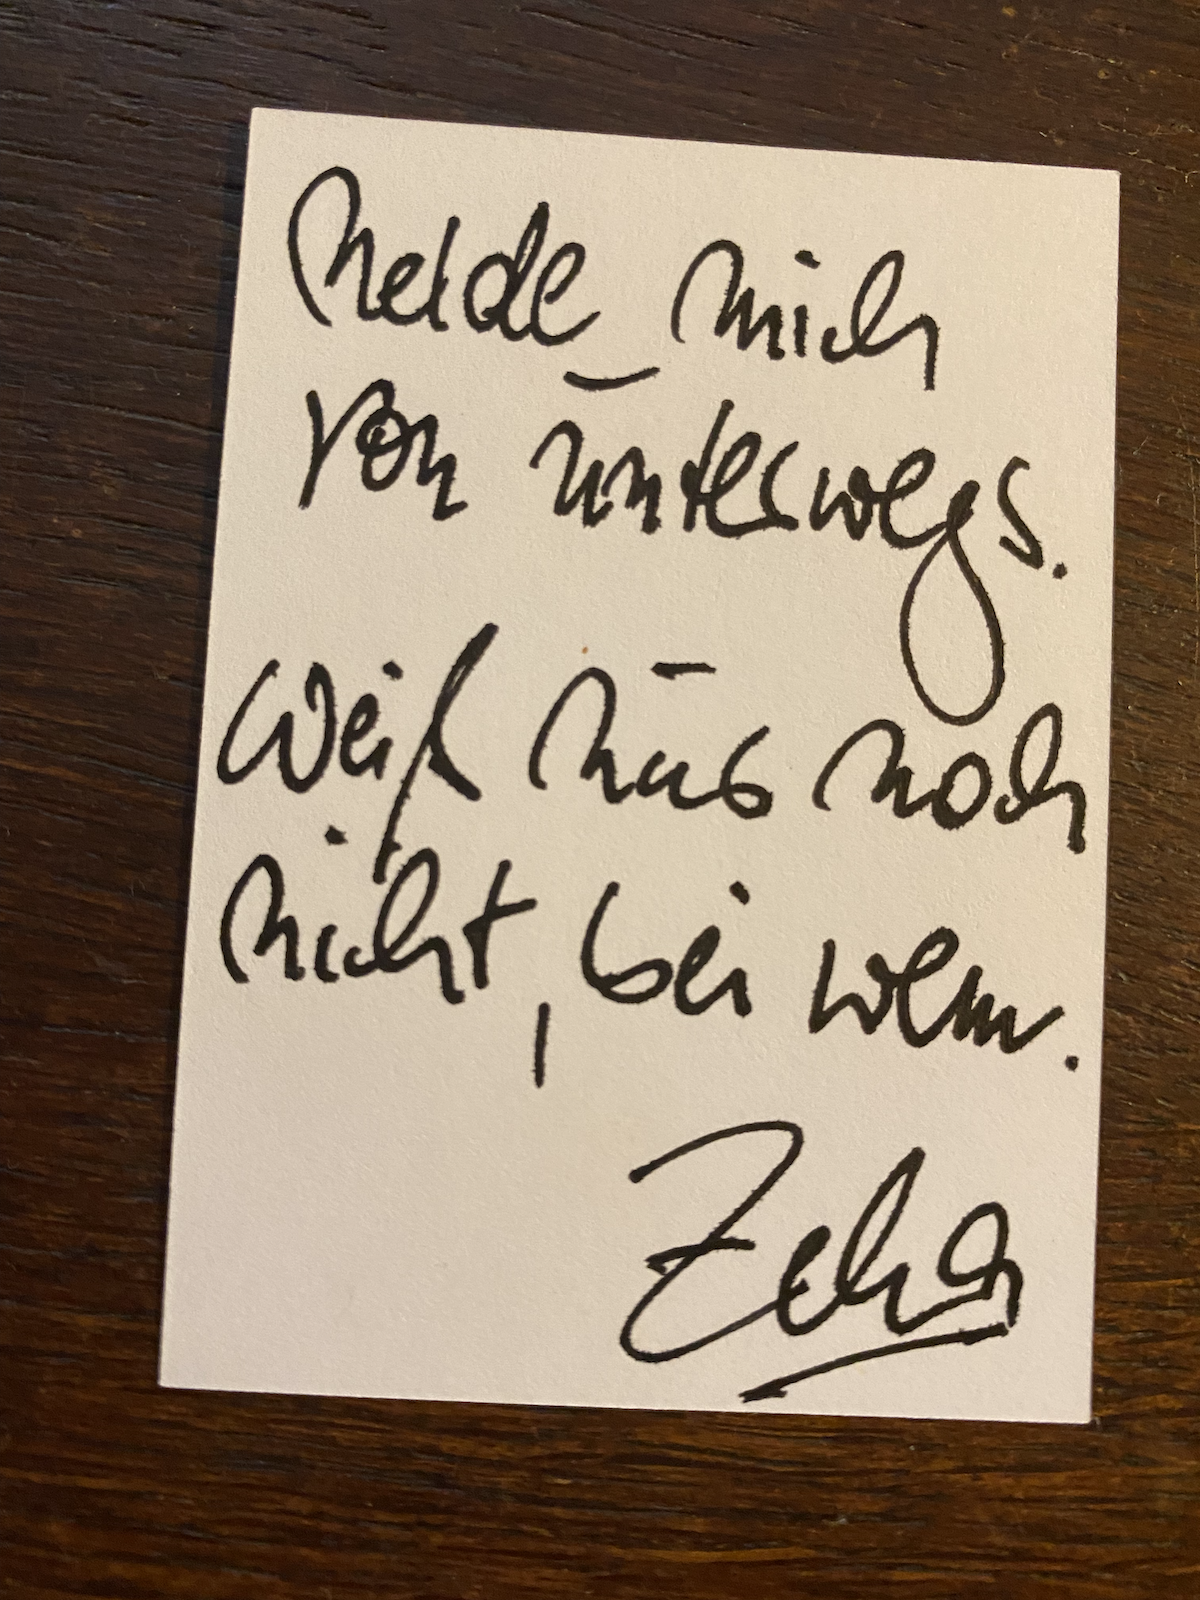 Melde mich
von unterwegs.
Weiß nur noch
nicht, bei wem.